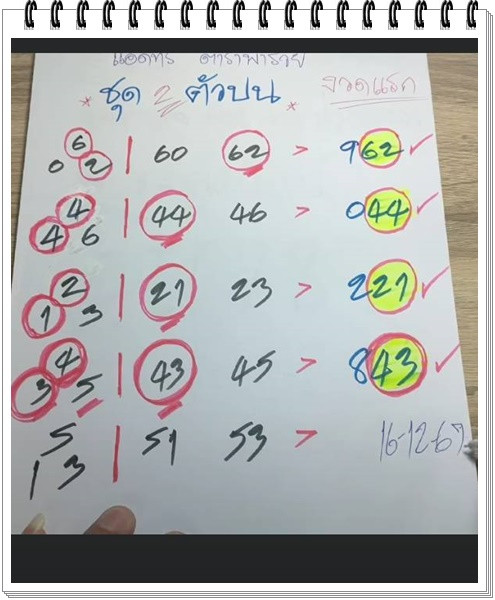 แอดทร ตาราพารวย
* ชุด 2 ตัวบน * งวดแรก
6
0 2 | 60 62 > 962 ✓
4
4 6 | 44 46 > 044 ✓
2
1 3 | 21 23 > 221 ✓
4
3 5 | 43 45 > 843 ✓
5
1 3 | 51 53 > 16-12-67